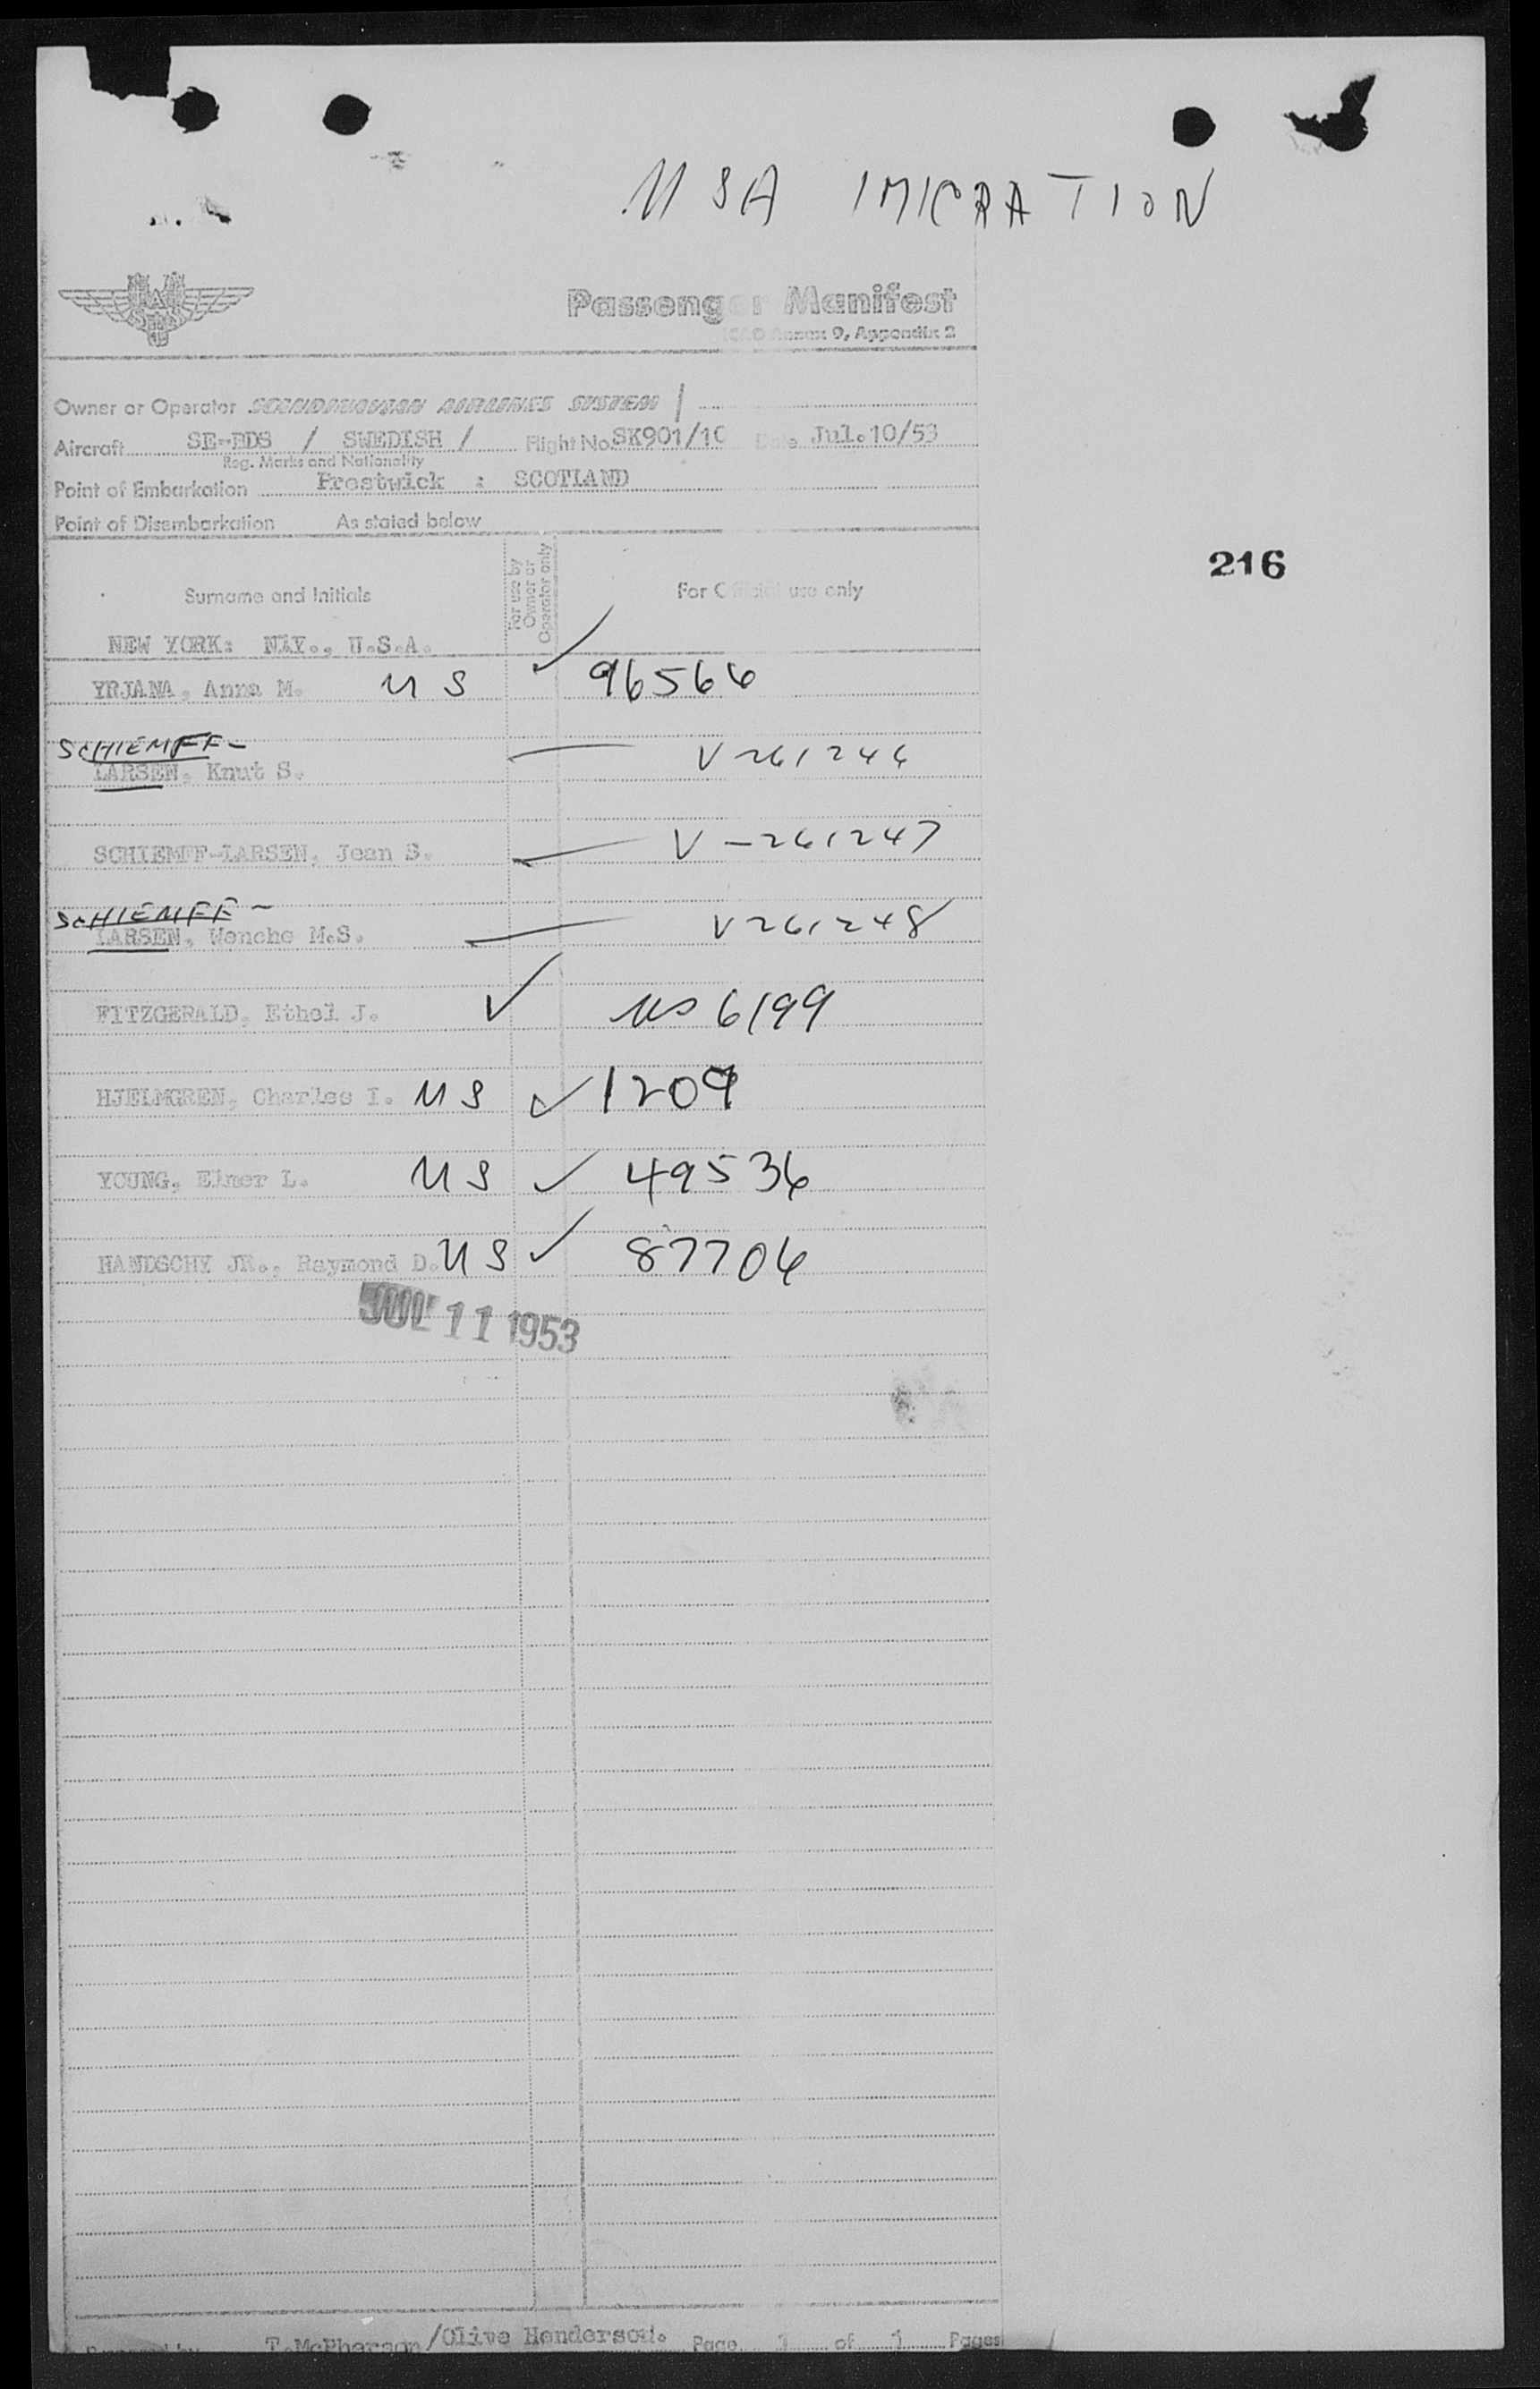 USA IMIGRATION
SAS
Passenger Manifest
ICAO Annex 9, Appendix 2
Owner or Operator SCANDINAVIAN AIRLINES SYSTEM /
Aircraft SE-BDS / SWEDISH / Flight No. SK901/10 Date Jul.10/53
Reg. Marks and Nationality
Point of Embarkation Prestwick : SCOTLAND
Point of Disembarkation As stated below
216
Surname and Initials For use by Owner or Operator only For Official use only
NEW YORK: N.Y., U.S.A.
YRJANA, Anna M. US ✓ 96566
SCHIEMFF-
LARSEN, Knut S. — V 261246
SCHIEMFF-LARSEN, Jean S. — V-261247
SCHIEMFF-
LARSEN, Wenche M.S. — V261248
FITZGERALD, Ethel J. ✓ US 6199
HJELMGREN, Charles I. US ✓ 1209
YOUNG, Elmer L. US ✓ 49536
HANDSCHY JR., Raymond D. US ✓ 87706
JUL 11 1953
Prepared by T.McPherson/Olive Henderson. Page 1 of 1 Pages